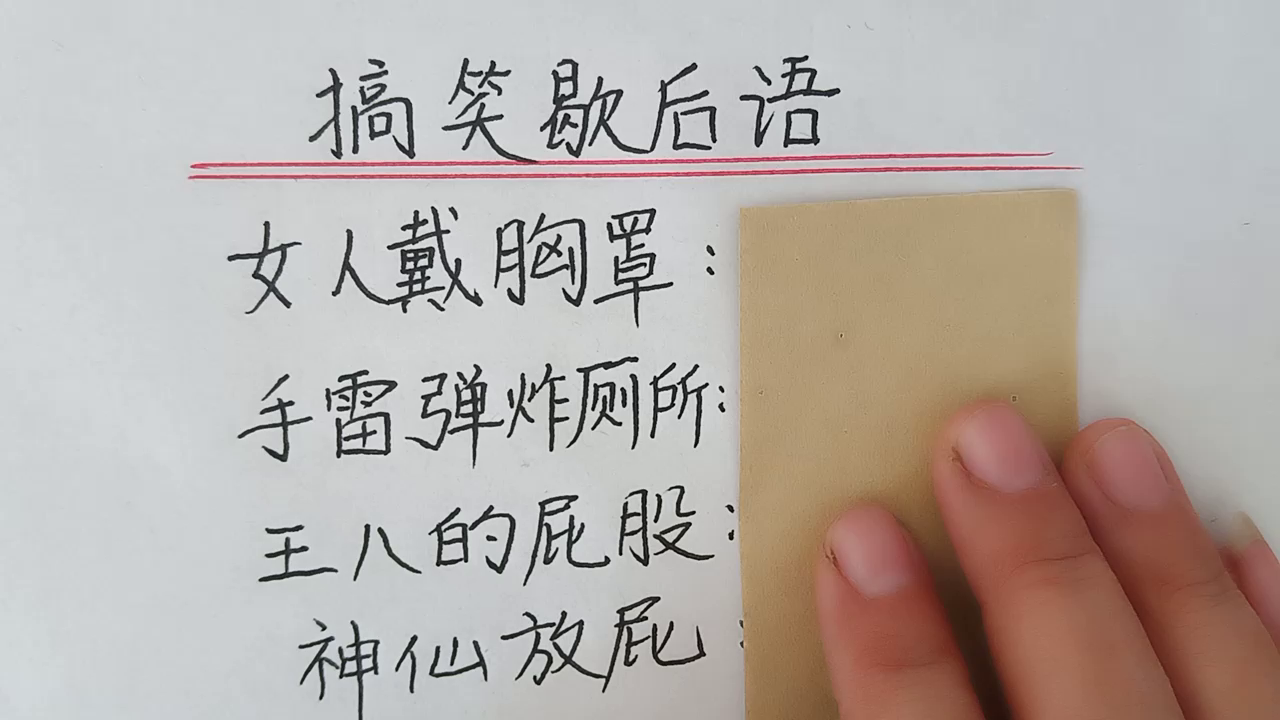 搞笑歇后语
女人戴胸罩：
手雷弹炸厕所：
王八的屁股：
神仙放屁：